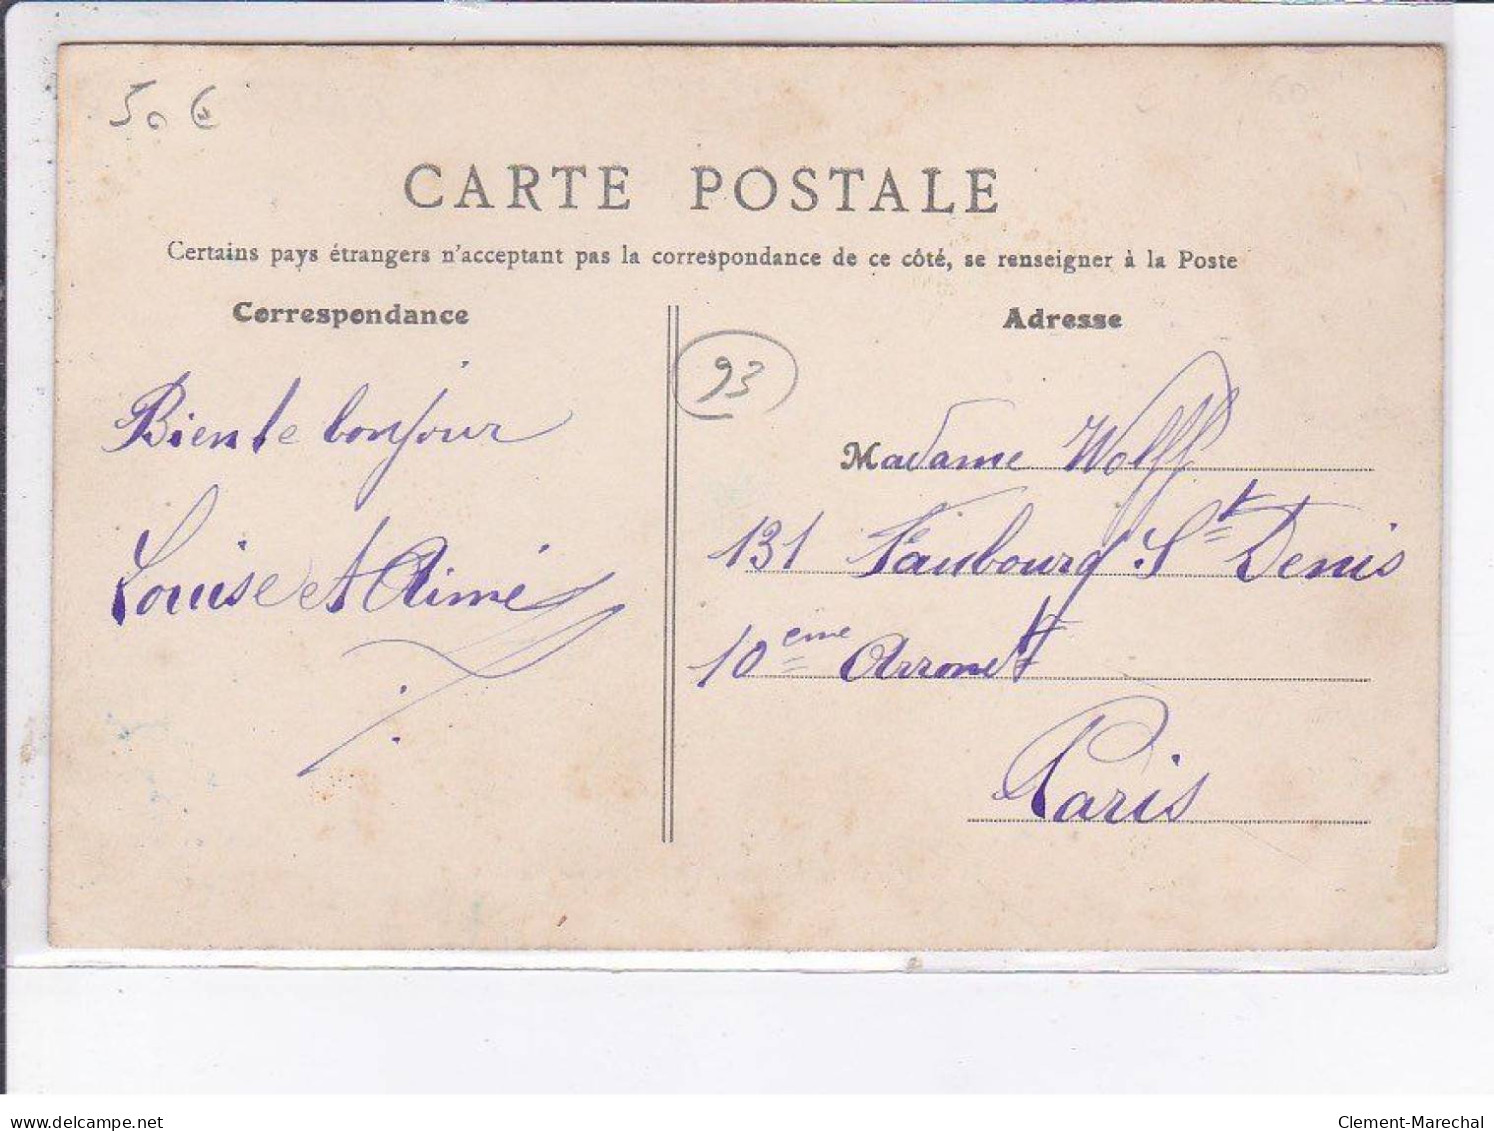 50 €
CARTE POSTALE
Certains pays étrangers n'acceptant pas la correspondance de ce côté, se renseigner à la Poste
Correspondance
Bien le bonjour
Louise et Aimé
93
Adresse
Madame Wolff
131 Faubourg St Denis
10eme Arrondt
Paris
delcampe.net
Clement-Marechal